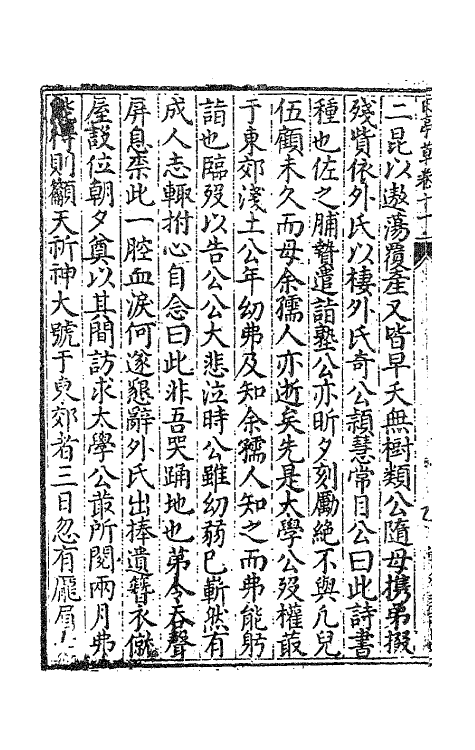 二昆以遨蕩隤產又皆早夭無樹類公隨母携弟掇
殘貲依外氏以棲外氏奇公頴慧常目公曰此詩書
種也佐之脯贄遣詣塾公亦昕夕刻勵絕不與凡兒
伍顧未久而母余孺人亦逝矣先是太學公歿權菆
于東郊淺土公年幼弗及知余孺人知之而弗能躬
詣也臨歿以告公公大悲泣時公雖幼弱已嶄然有
成人志輙拊心自念曰此非吾哭踊地也第令吞聲
屏息柰此一腔血淚何遂懇辭外氏出捧遺簪衣僦
屋設位朝夕奠以其間訪求太學公菆所閱兩月弗
能得則籲天祈神大號于東郊者三日忽有龐眉